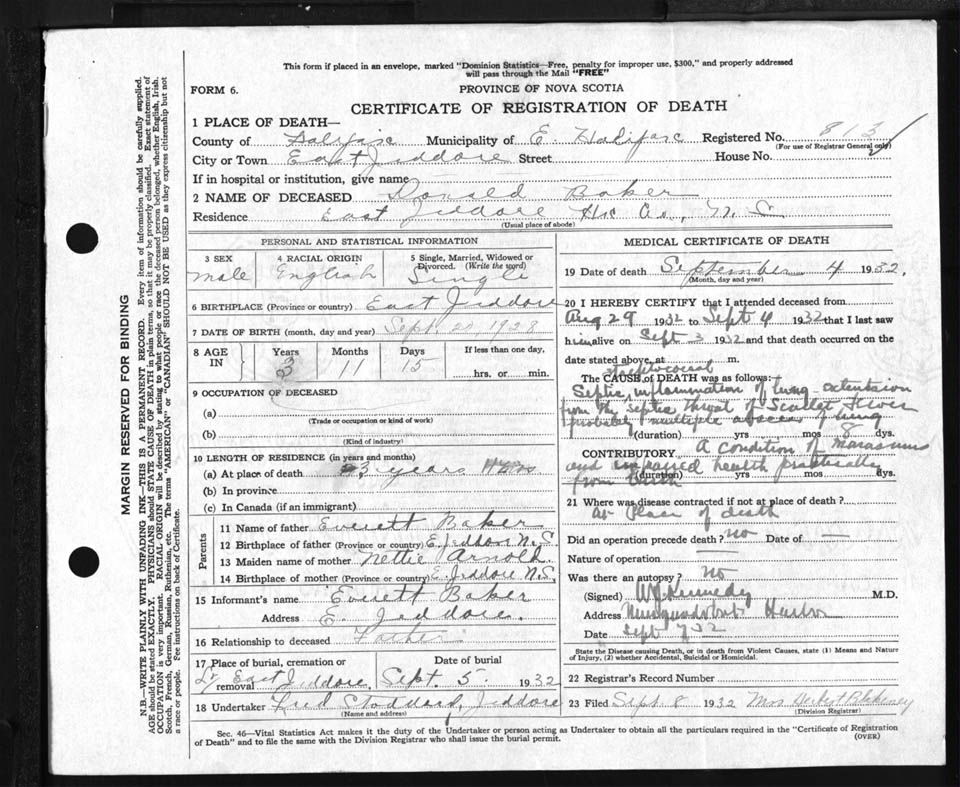 This form if placed in an envelope, marked "Dominion Statistics—Free, penalty for improper use, $300," and properly addressed
will pass through the Mail "FREE"
FORM 6.
PROVINCE OF NOVA SCOTIA
CERTIFICATE OF REGISTRATION OF DEATH
1 PLACE OF DEATH—
County of Halifax Municipality of E. Halifax Registered No. 813
(For use of Registrar General only)
City or Town East Jeddore Street House No.
If in hospital or institution, give name
2 NAME OF DECEASED Donald Baker
Residence East Jeddore Hx Co., N. S.
(Usual place of abode)
PERSONAL AND STATISTICAL INFORMATION
3 SEX 4 RACIAL ORIGIN 5 Single, Married, Widowed or Divorced. (Write the word)
male English Single
6 BIRTHPLACE (Province or country) East Jeddore
7 DATE OF BIRTH (month, day and year) Sept. 20, 1928
8 AGE IN Years Months Days If less than one day,
3 11 15 hrs. or min.
9 OCCUPATION OF DECEASED
(a)
(Trade or occupation or kind of work)
(b)
(Kind of industry)
10 LENGTH OF RESIDENCE (in years and months)
(a) At place of death 3 years
(b) In province
(c) In Canada (if an immigrant)
Parents
11 Name of father Everett Baker
12 Birthplace of father (Province or country) E. Jeddore N. S.
13 Maiden name of mother Nettie Arnold
14 Birthplace of mother (Province or country) E. Jeddore N. S.
15 Informant's name Everett Baker
Address E. Jeddore.
16 Relationship to deceased Father
17 Place of burial, cremation or removal Date of burial
East Jeddore, Sept. 5. 1932
18 Undertaker Fred Stoddard, Jeddore
(Name and address)
MEDICAL CERTIFICATE OF DEATH
19 Date of death September 4 1932.
(Month, day and year)
20 I HEREBY CERTIFY that I attended deceased from
Aug 29 1932 to Sept 4 1932 that I last saw
him alive on Sept 3 1932 and that death occurred on the
date stated above, at m.
The CAUSE of DEATH was as follows:—
Septic inflammation of lung extension
from the septic throat of Scarlet Fever
probably multiple abscess of lung
(duration) yrs mos 8 dys.
CONTRIBUTORY A condition of Marasmus
and impaired health practically
(duration) yrs mos dys.
from birth
21 Where was disease contracted if not at place of death?
At Place of death
Did an operation precede death? no Date of —
Nature of operation —
Was there an autopsy? no
(Signed) W Kennedy M.D.
Address Musquodoboit Harbor
Date Sept 7 32
State the Disease causing Death, or in death from Violent Causes, state (1) Means and Nature
of Injury, (2) whether Accidental, Suicidal or Homicidal.
22 Registrar's Record Number
23 Filed Sept. 8 1932 Mrs Herbert Blakeney
(Division Registrar)
Sec. 46—Vital Statistics Act makes it the duty of the Undertaker or person acting as Undertaker to obtain all the particulars required in the "Certificate of Registration
of Death" and to file the same with the Division Registrar who shall issue the burial permit.
(OVER)
MARGIN RESERVED FOR BINDING
N.B.—WRITE PLAINLY WITH UNFADING INK—THIS IS A PERMANENT RECORD. Every item of information should be carefully supplied.
AGE should be stated EXACTLY. PHYSICIANS should STATE CAUSE OF DEATH in plain terms, so that it may be properly classified. Exact statement of
OCCUPATION is very important. RACIAL ORIGIN will be described by stating to what people or race the deceased person belonged, whether English, Irish,
Scotch, French, German, Russian, Ruthenian, etc. The terms "AMERICAN" or "CANADIAN" SHOULD NOT BE USED as they express citizenship but not
a race or people. Fee instructions on back of Certificate.